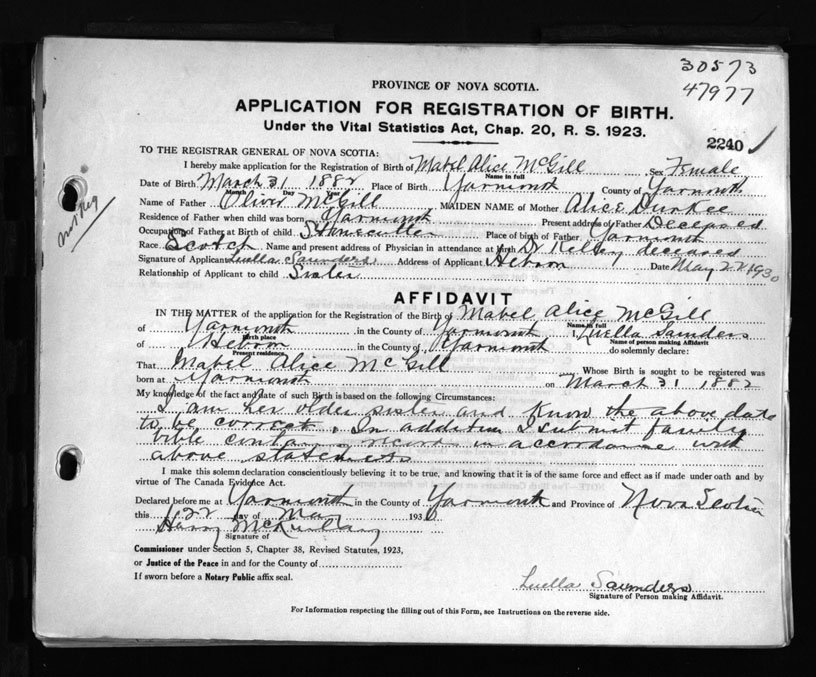 30573
47977
PROVINCE OF NOVA SCOTIA.
APPLICATION FOR REGISTRATION OF BIRTH.
Under the Vital Statistics Act, Chap. 20, R. S. 1923.
2240
TO THE REGISTRAR GENERAL OF NOVA SCOTIA:
I hereby make application for the Registration of Birth of Mabel Alice McGill Sex Female
Name in full
Date of Birth March 31 1882 Place of Birth Yarmouth County of Yarmouth
Month Day Year
Name of Father Oliver McGill MAIDEN NAME of Mother Alice Durkee
Residence of Father when child was born Yarmouth Present address of Father Deceased
Occupation of Father at Birth of child Stonecutter Place of birth of Father Yarmouth
Race Scotch Name and present address of Physician in attendance at Birth Dr Kelley deceased
Signature of Applicant Luella Saunders Address of Applicant Hebron Date May 22 1930
Relationship of Applicant to child Sister
not Reg
AFFIDAVIT
IN THE MATTER of the application for the Registration of the Birth of Mabel Alice McGill
Name in full
of Yarmouth in the County of Yarmouth I, Luella Saunders
Birth place Name of person making Affidavit
of Hebron in the County of Yarmouth do solemnly declare:
Present residence
That Mabel Alice McGill Whose Birth is sought to be registered was
born at Yarmouth on March 31 1882
My knowledge of the fact and date of such Birth is based on the following Circumstances:
I am her older sister and know the above date
to be correct. In addition I submit family
bible record in accordance with
above statements
I make this solemn declaration conscientiously believing it to be true, and knowing that it is of the same force and effect as if made under oath and by
virtue of The Canada Evidence Act.
Declared before me at Yarmouth in the County of Yarmouth and Province of Nova Scotia
this 22 day of May 1930
Harry
Signature of
Commissioner under Section 5, Chapter 38, Revised Statutes, 1923,
or Justice of the Peace in and for the County of
If sworn before a Notary Public affix seal.
Luella Saunders
Signature of Person making Affidavit.
For Information respecting the filling out of this Form, see Instructions on the reverse side.